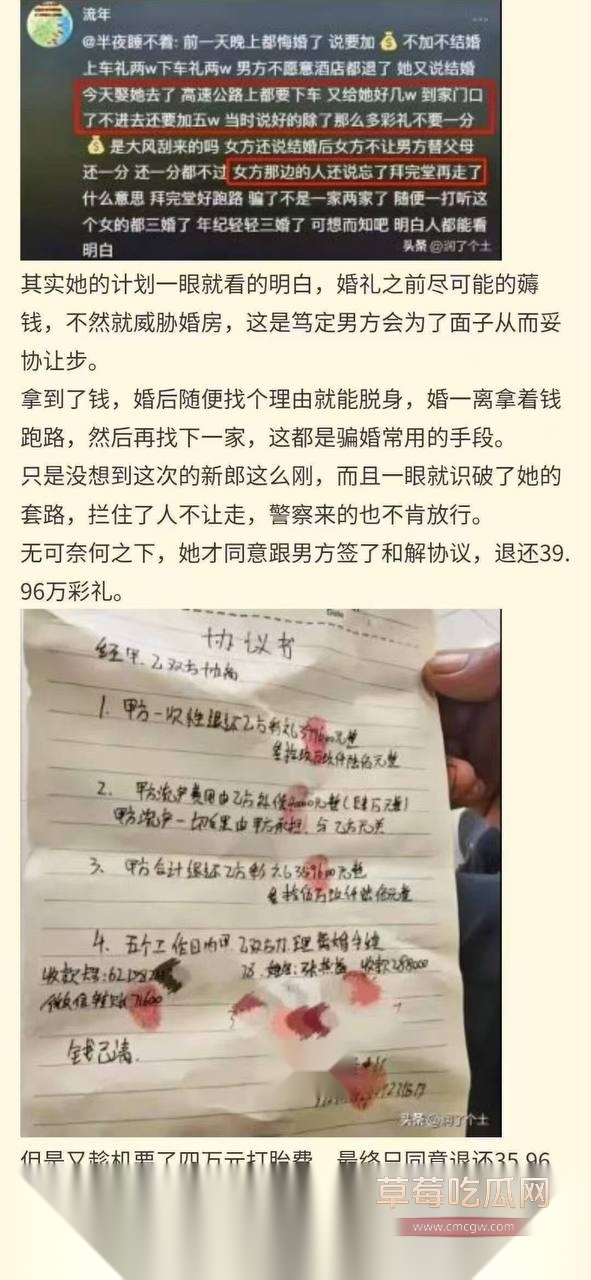 流年
@半夜睡不着: 前一天晚上都悔婚了 说要加💰 不加不结婚
上车礼两w下车礼两w 男方不愿意酒店都退了 她又说结婚
今天娶她去了 高速公路上都要下车 又给她好几w 到家门口
了不进去还要加五w 当时说好的除了那么多彩礼不要一分
💰是大风刮来的吗 女方还说结婚后女方不让男方替父母
还一分 还一分都不过 女方那边的人还说忘了拜完堂再走了
什么意思 拜完堂好跑路 骗了不是一家两家了 随便一打听这
个女的都三婚了 年纪轻轻三婚了 可想而知吧 明白人都能看
明白
头条 @润了个土
其实她的计划一眼就看的明白，婚礼之前尽可能的薅
钱，不然就威胁婚房，这是笃定男方会为了面子从而妥
协让步。
拿到了钱，婚后随便找个理由就能脱身，婚一离拿着钱
跑路，然后再找下一家，这都是骗婚常用的手段。
只是没想到这次的新郎这么刚，而且一眼就识破了她的
套路，拦住了人不让走，警察来的也不肯放行。
无可奈何之下，她才同意跟男方签了和解协议，退还39.
96万彩礼。
Date
协议书
经甲、乙双方协商
1. 甲方一次性退还乙方彩礼 元整
叁拾玖万玖仟陆佰元整
2. 甲方流产费用由乙方补偿 元整(肆万元整)
甲方流产一切后果由甲方承担，与乙方无关
3. 甲方合计退还乙方彩礼359600元整
叁拾伍万玖仟陆佰元整
4. 五个工作日内甲、乙双方办理离婚手续
收款卡号:621282 姓名:张 收款288000
微信转账71600
钱已清.
头条 @润了个土
但是又趁机要了四万元打胎费，最终只同意退还35.96
草莓吃瓜网
www.cmcgw.com